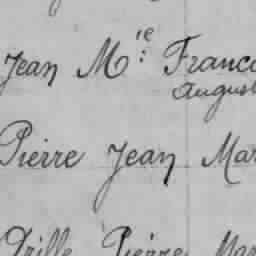 Jean M.ie Franc
August
Pierre Jean Mar
Pierre Mar